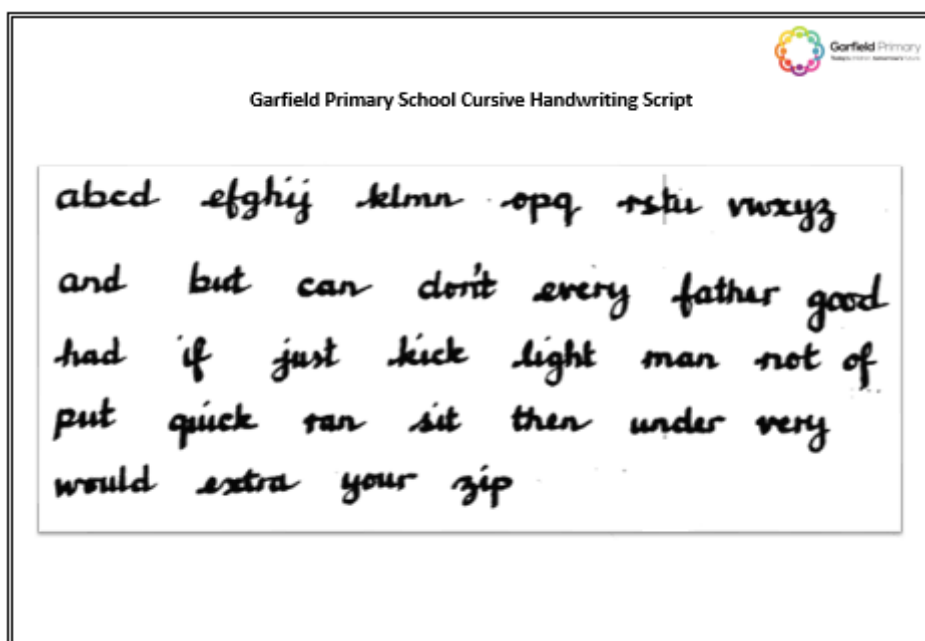 Garfield Primary
Garfield Primary School Cursive Handwriting Script
abcd efghij klmn opq rstu vwxyz
and but can don't every father good
had if just kick light man not of
put quick ran sit then under very
would extra your zip